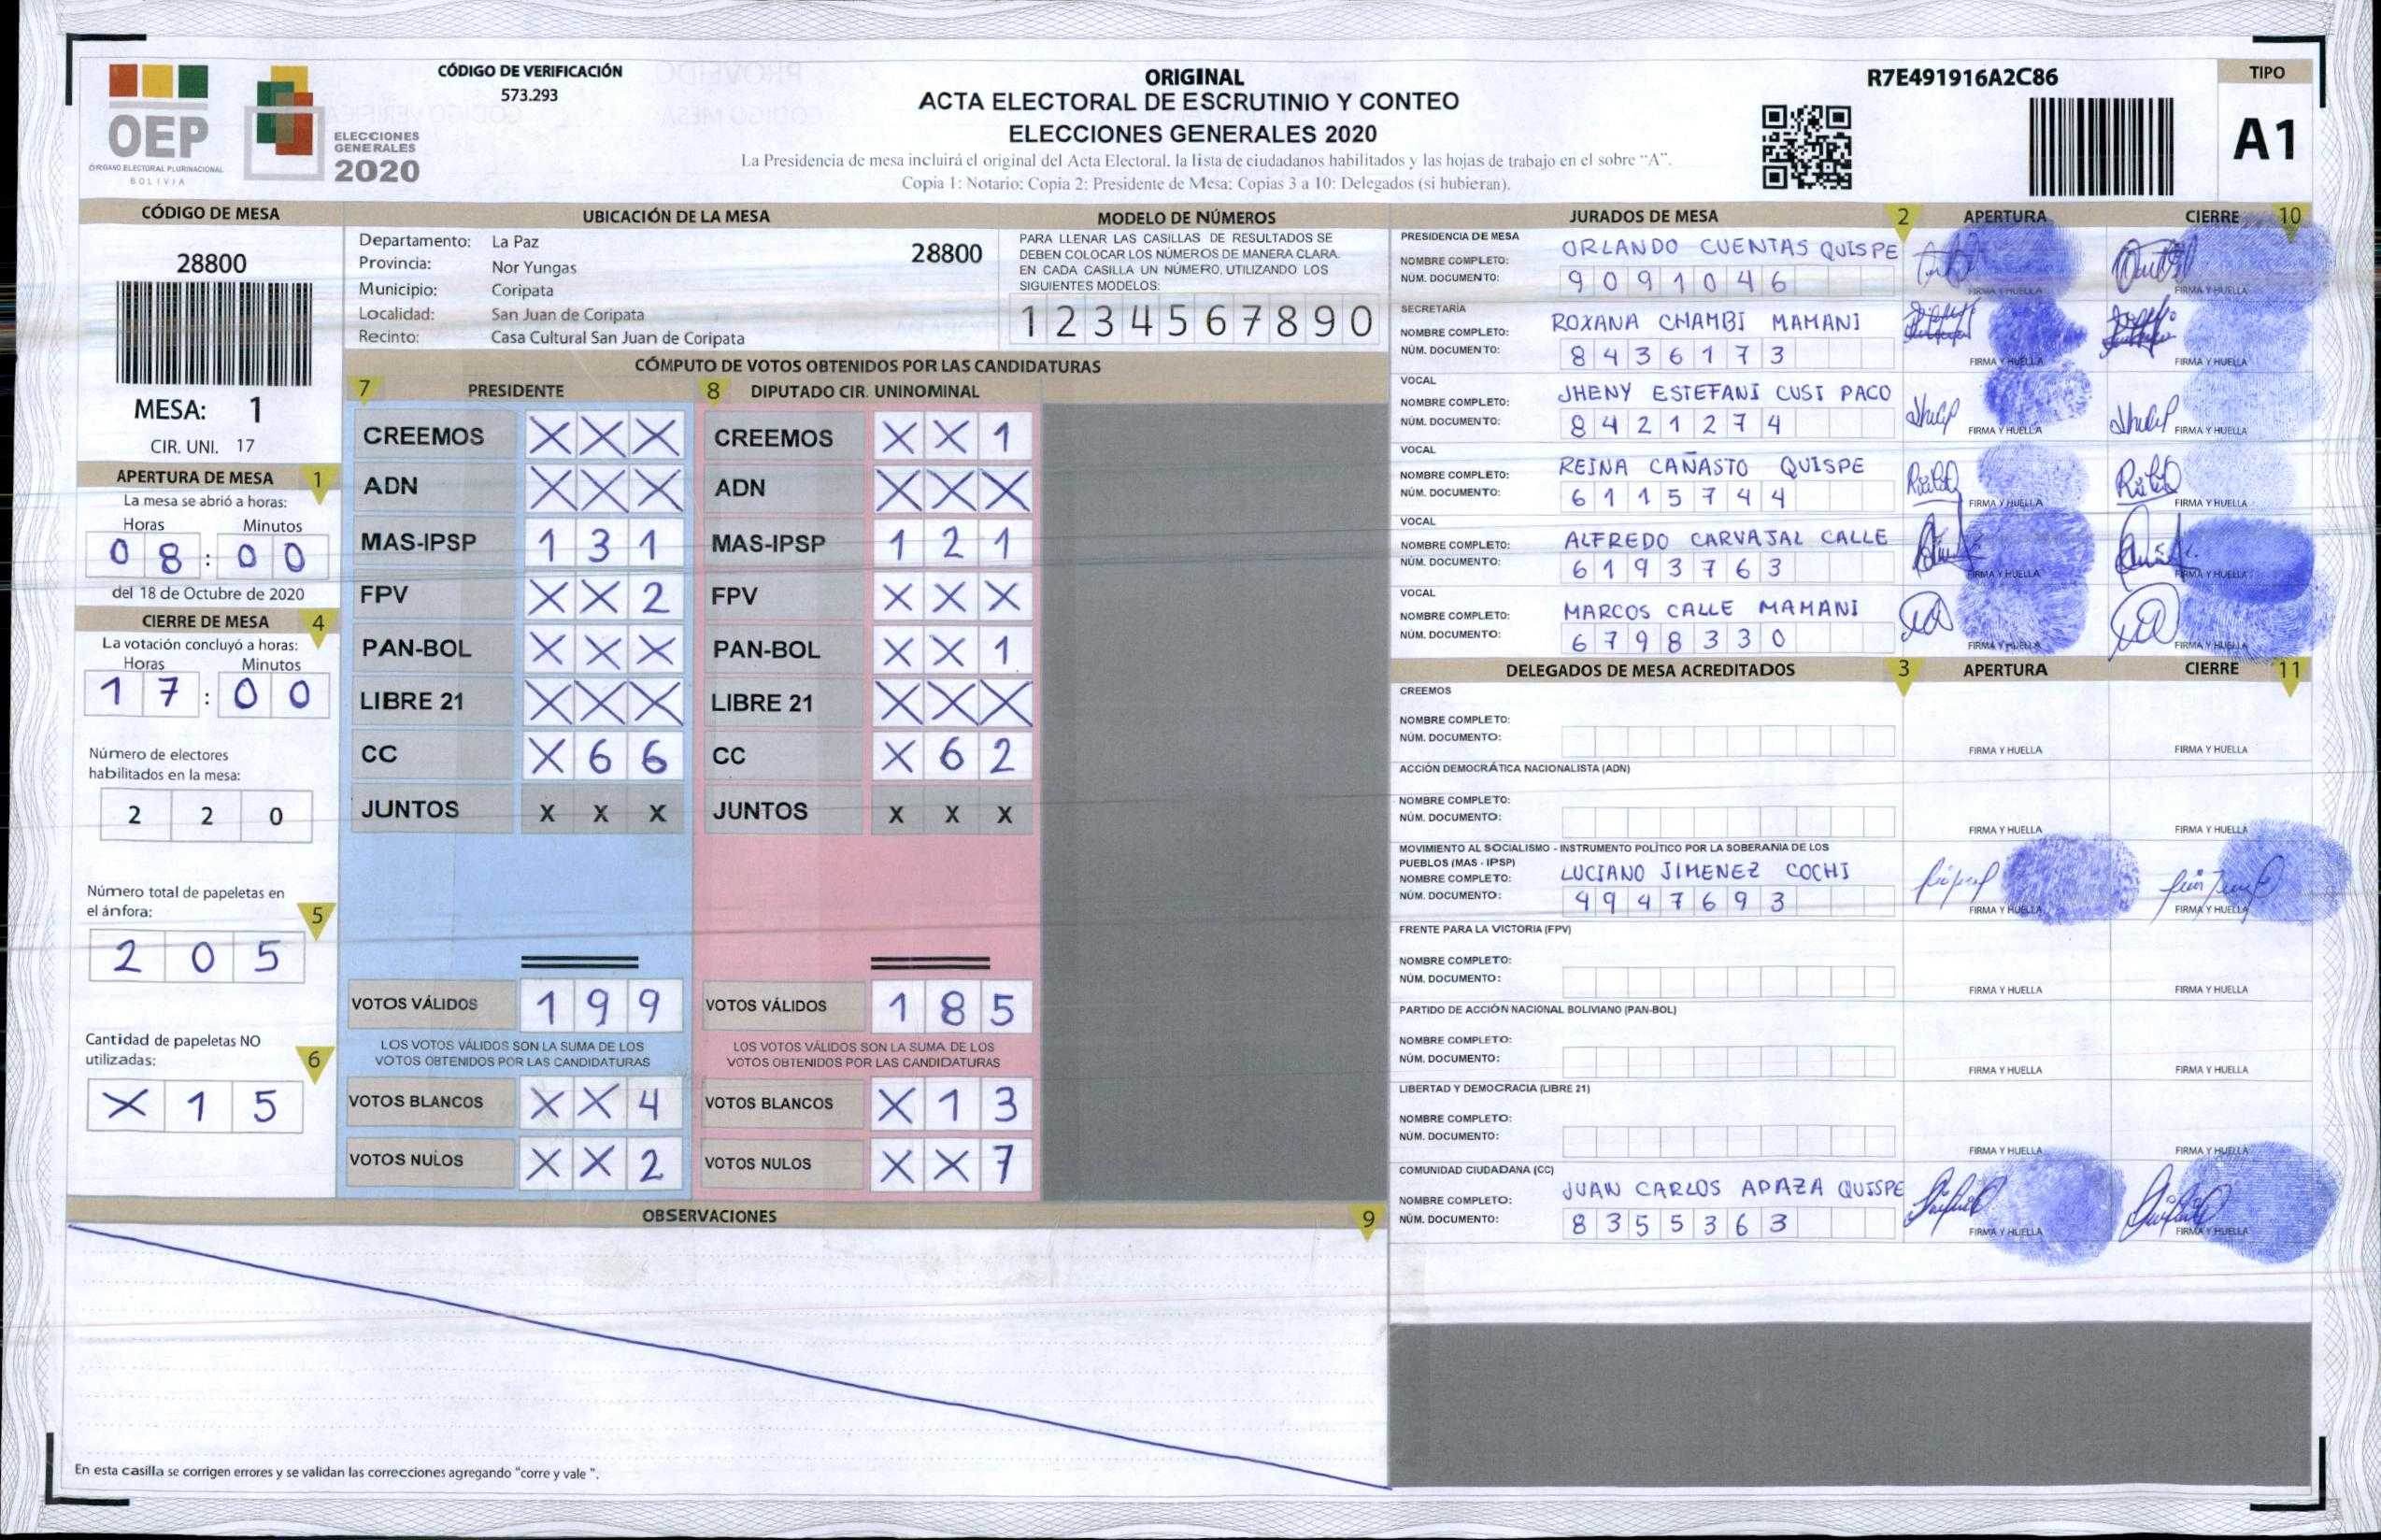 OEP
ÓRGANO ELECTORAL PLURINACIONAL
BOLIVIA
ELECCIONES
GENERALES
2020
CÓDIGO DE VERIFICACIÓN
573.293
ORIGINAL
ACTA ELECTORAL DE ESCRUTINIO Y CONTEO
ELECCIONES GENERALES 2020
La Presidencia de mesa incluirá el original del Acta Electoral, la lista de ciudadanos habilitados y las hojas de trabajo en el sobre "A".
Copia 1: Notario; Copia 2: Presidente de Mesa; Copias 3 a 10: Delegados (si hubieran).
R7E491916A2C86
TIPO
A1
CÓDIGO DE MESA
28800
MESA: 1
CIR. UNI. 17
APERTURA DE MESA 1
La mesa se abrió a horas:
Horas Minutos
0 8 : 0 0
del 18 de Octubre de 2020
CIERRE DE MESA 4
La votación concluyó a horas:
Horas Minutos
1 7 : 0 0
Número de electores
habilitados en la mesa:
2 2 0
Número total de papeletas en
el ánfora:
5
2 0 5
Cantidad de papeletas NO
utilizadas:
6
X 1 5
UBICACIÓN DE LA MESA
Departamento: La Paz 28800
Provincia: Nor Yungas
Municipio: Coripata
Localidad: San Juan de Coripata
Recinto: Casa Cultural San Juan de Coripata
MODELO DE NÚMEROS
PARA LLENAR LAS CASILLAS DE RESULTADOS SE
DEBEN COLOCAR LOS NÚMEROS DE MANERA CLARA.
EN CADA CASILLA UN NÚMERO, UTILIZANDO LOS
SIGUIENTES MODELOS:
1 2 3 4 5 6 7 8 9 0
CÓMPUTO DE VOTOS OBTENIDOS POR LAS CANDIDATURAS
7 PRESIDENTE
CREEMOS X X X
ADN X X X
MAS-IPSP 1 3 1
FPV X X 2
PAN-BOL X X X
LIBRE 21 X X X
CC X 6 6
JUNTOS X X X
VOTOS VÁLIDOS 1 9 9
LOS VOTOS VÁLIDOS SON LA SUMA DE LOS
VOTOS OBTENIDOS POR LAS CANDIDATURAS
VOTOS BLANCOS X X 4
VOTOS NULOS X X 2
8 DIPUTADO CIR. UNINOMINAL
CREEMOS X X 1
ADN X X X
MAS-IPSP 1 2 1
FPV X X X
PAN-BOL X X 1
LIBRE 21 X X X
CC X 6 2
JUNTOS X X X
VOTOS VÁLIDOS 1 8 5
LOS VOTOS VÁLIDOS SON LA SUMA DE LOS
VOTOS OBTENIDOS POR LAS CANDIDATURAS
VOTOS BLANCOS X 1 3
VOTOS NULOS X X 7
OBSERVACIONES 9
En esta casilla se corrigen errores y se validan las correcciones agregando "corre y vale ".
JURADOS DE MESA 2 APERTURA CIERRE 10
PRESIDENCIA DE MESA
NOMBRE COMPLETO: ORLANDO CUENTAS QUISPE
NÚM. DOCUMENTO: 9 0 9 1 0 4 6
FIRMA Y HUELLA FIRMA Y HUELLA
SECRETARÍA
NOMBRE COMPLETO: ROXANA CHAMBI MAMANI
NÚM. DOCUMENTO: 8 4 3 6 1 7 3
FIRMA Y HUELLA FIRMA Y HUELLA
VOCAL
NOMBRE COMPLETO: JHENY ESTEFANI CUSI PACO
NÚM. DOCUMENTO: 8 4 2 1 2 7 4
FIRMA Y HUELLA FIRMA Y HUELLA
VOCAL
NOMBRE COMPLETO: REINA CAÑASTO QUISPE
NÚM. DOCUMENTO: 6 1 1 5 7 4 4
FIRMA Y HUELLA FIRMA Y HUELLA
VOCAL
NOMBRE COMPLETO: ALFREDO CARVAJAL CALLE
NÚM. DOCUMENTO: 6 1 9 3 7 6 3
FIRMA Y HUELLA FIRMA Y HUELLA
VOCAL
NOMBRE COMPLETO: MARCOS CALLE MAMANI
NÚM. DOCUMENTO: 6 7 9 8 3 3 0
FIRMA Y HUELLA FIRMA Y HUELLA
DELEGADOS DE MESA ACREDITADOS 3 APERTURA CIERRE 11
CREEMOS
NOMBRE COMPLETO:
NÚM. DOCUMENTO:
FIRMA Y HUELLA FIRMA Y HUELLA
ACCIÓN DEMOCRÁTICA NACIONALISTA (ADN)
NOMBRE COMPLETO:
NÚM. DOCUMENTO:
FIRMA Y HUELLA FIRMA Y HUELLA
MOVIMIENTO AL SOCIALISMO - INSTRUMENTO POLÍTICO POR LA SOBERANIA DE LOS
PUEBLOS (MAS - IPSP)
NOMBRE COMPLETO: LUCIANO JIMENEZ COCHI
NÚM. DOCUMENTO: 4 9 4 7 6 9 3
FIRMA Y HUELLA FIRMA Y HUELLA
FRENTE PARA LA VICTORIA (FPV)
NOMBRE COMPLETO:
NÚM. DOCUMENTO:
FIRMA Y HUELLA FIRMA Y HUELLA
PARTIDO DE ACCIÓN NACIONAL BOLIVIANO (PAN-BOL)
NOMBRE COMPLETO:
NÚM. DOCUMENTO:
FIRMA Y HUELLA FIRMA Y HUELLA
LIBERTAD Y DEMOCRACIA (LIBRE 21)
NOMBRE COMPLETO:
NÚM. DOCUMENTO:
FIRMA Y HUELLA FIRMA Y HUELLA
COMUNIDAD CIUDADANA (CC)
NOMBRE COMPLETO: JUAN CARLOS APAZA QUISPE
NÚM. DOCUMENTO: 8 3 5 5 3 6 3
FIRMA Y HUELLA FIRMA Y HUELLA